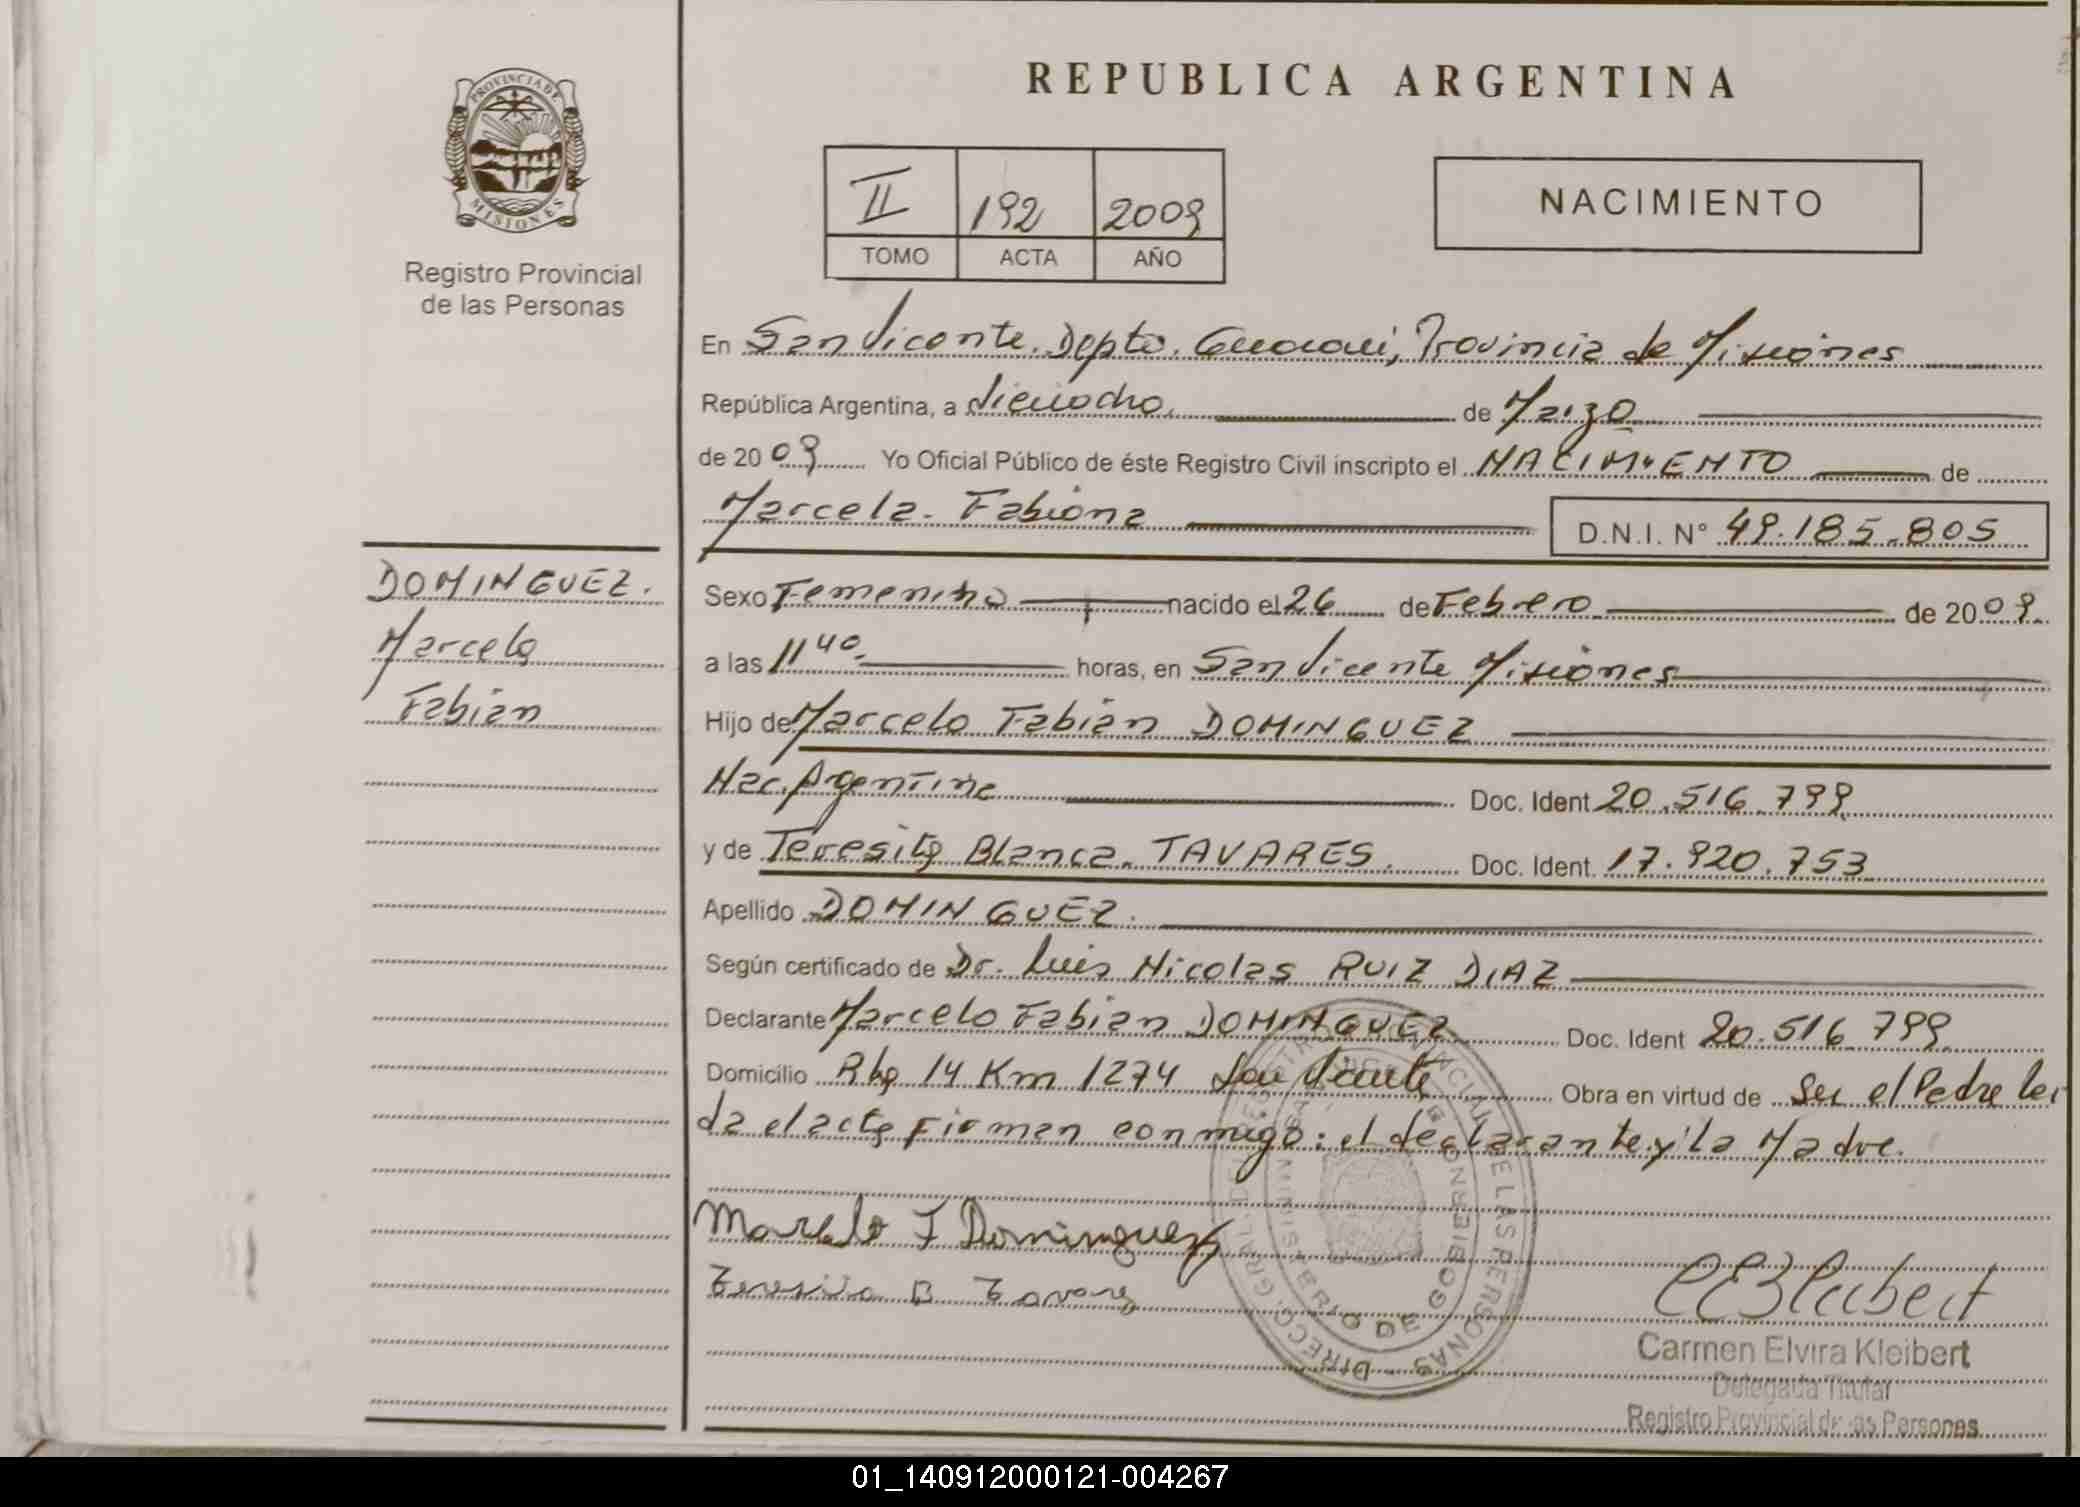 PROVINCIA DE
MISIONES
Registro Provincial
de las Personas
REPUBLICA ARGENTINA
II 192 2009
TOMO ACTA AÑO
NACIMIENTO
En San Vicente. Depto. Guaraní, Provincia de Misiones
República Argentina, a dieciocho de Marzo
de 2009 Yo Oficial Público de éste Registro Civil inscripto el NACIMIENTO de
Marcela Fabiana D.N.I. N° 49.185.805
DOMINGUEZ.
Marcelo
Fabián
Sexo Femenino nacido el 26 de Febrero de 2009.
a las 11 40 horas, en San Vicente Misiones
Hijo de Marcelo Fabián DOMINGUEZ
Nac. Argentina Doc. Ident 20.516.799
y de Teresita Blanca TAVARES. Doc. Ident. 17.920.753
Apellido DOMINGUEZ.
Según certificado de Dr. Luis Nicolas RUIZ DIAZ
Declarante Marcelo Fabián DOMINGUEZ Doc. Ident 20.516.799
Domicilio 14 Km 1274 San Vicente Obra en virtud de Ser el Padre lei
da el acta Firman conmigo: el declarante y la Madre.
Marcelo F Dominguez
Teresita B Tavares
DIRECC. GRAL. DE LAS PERSONAS
MINISTERIO DE GOBIERNO
Carmen Elvira Kleibert
Delegada Titular
Registro Provincial de las Personas
01_140912000121-004267